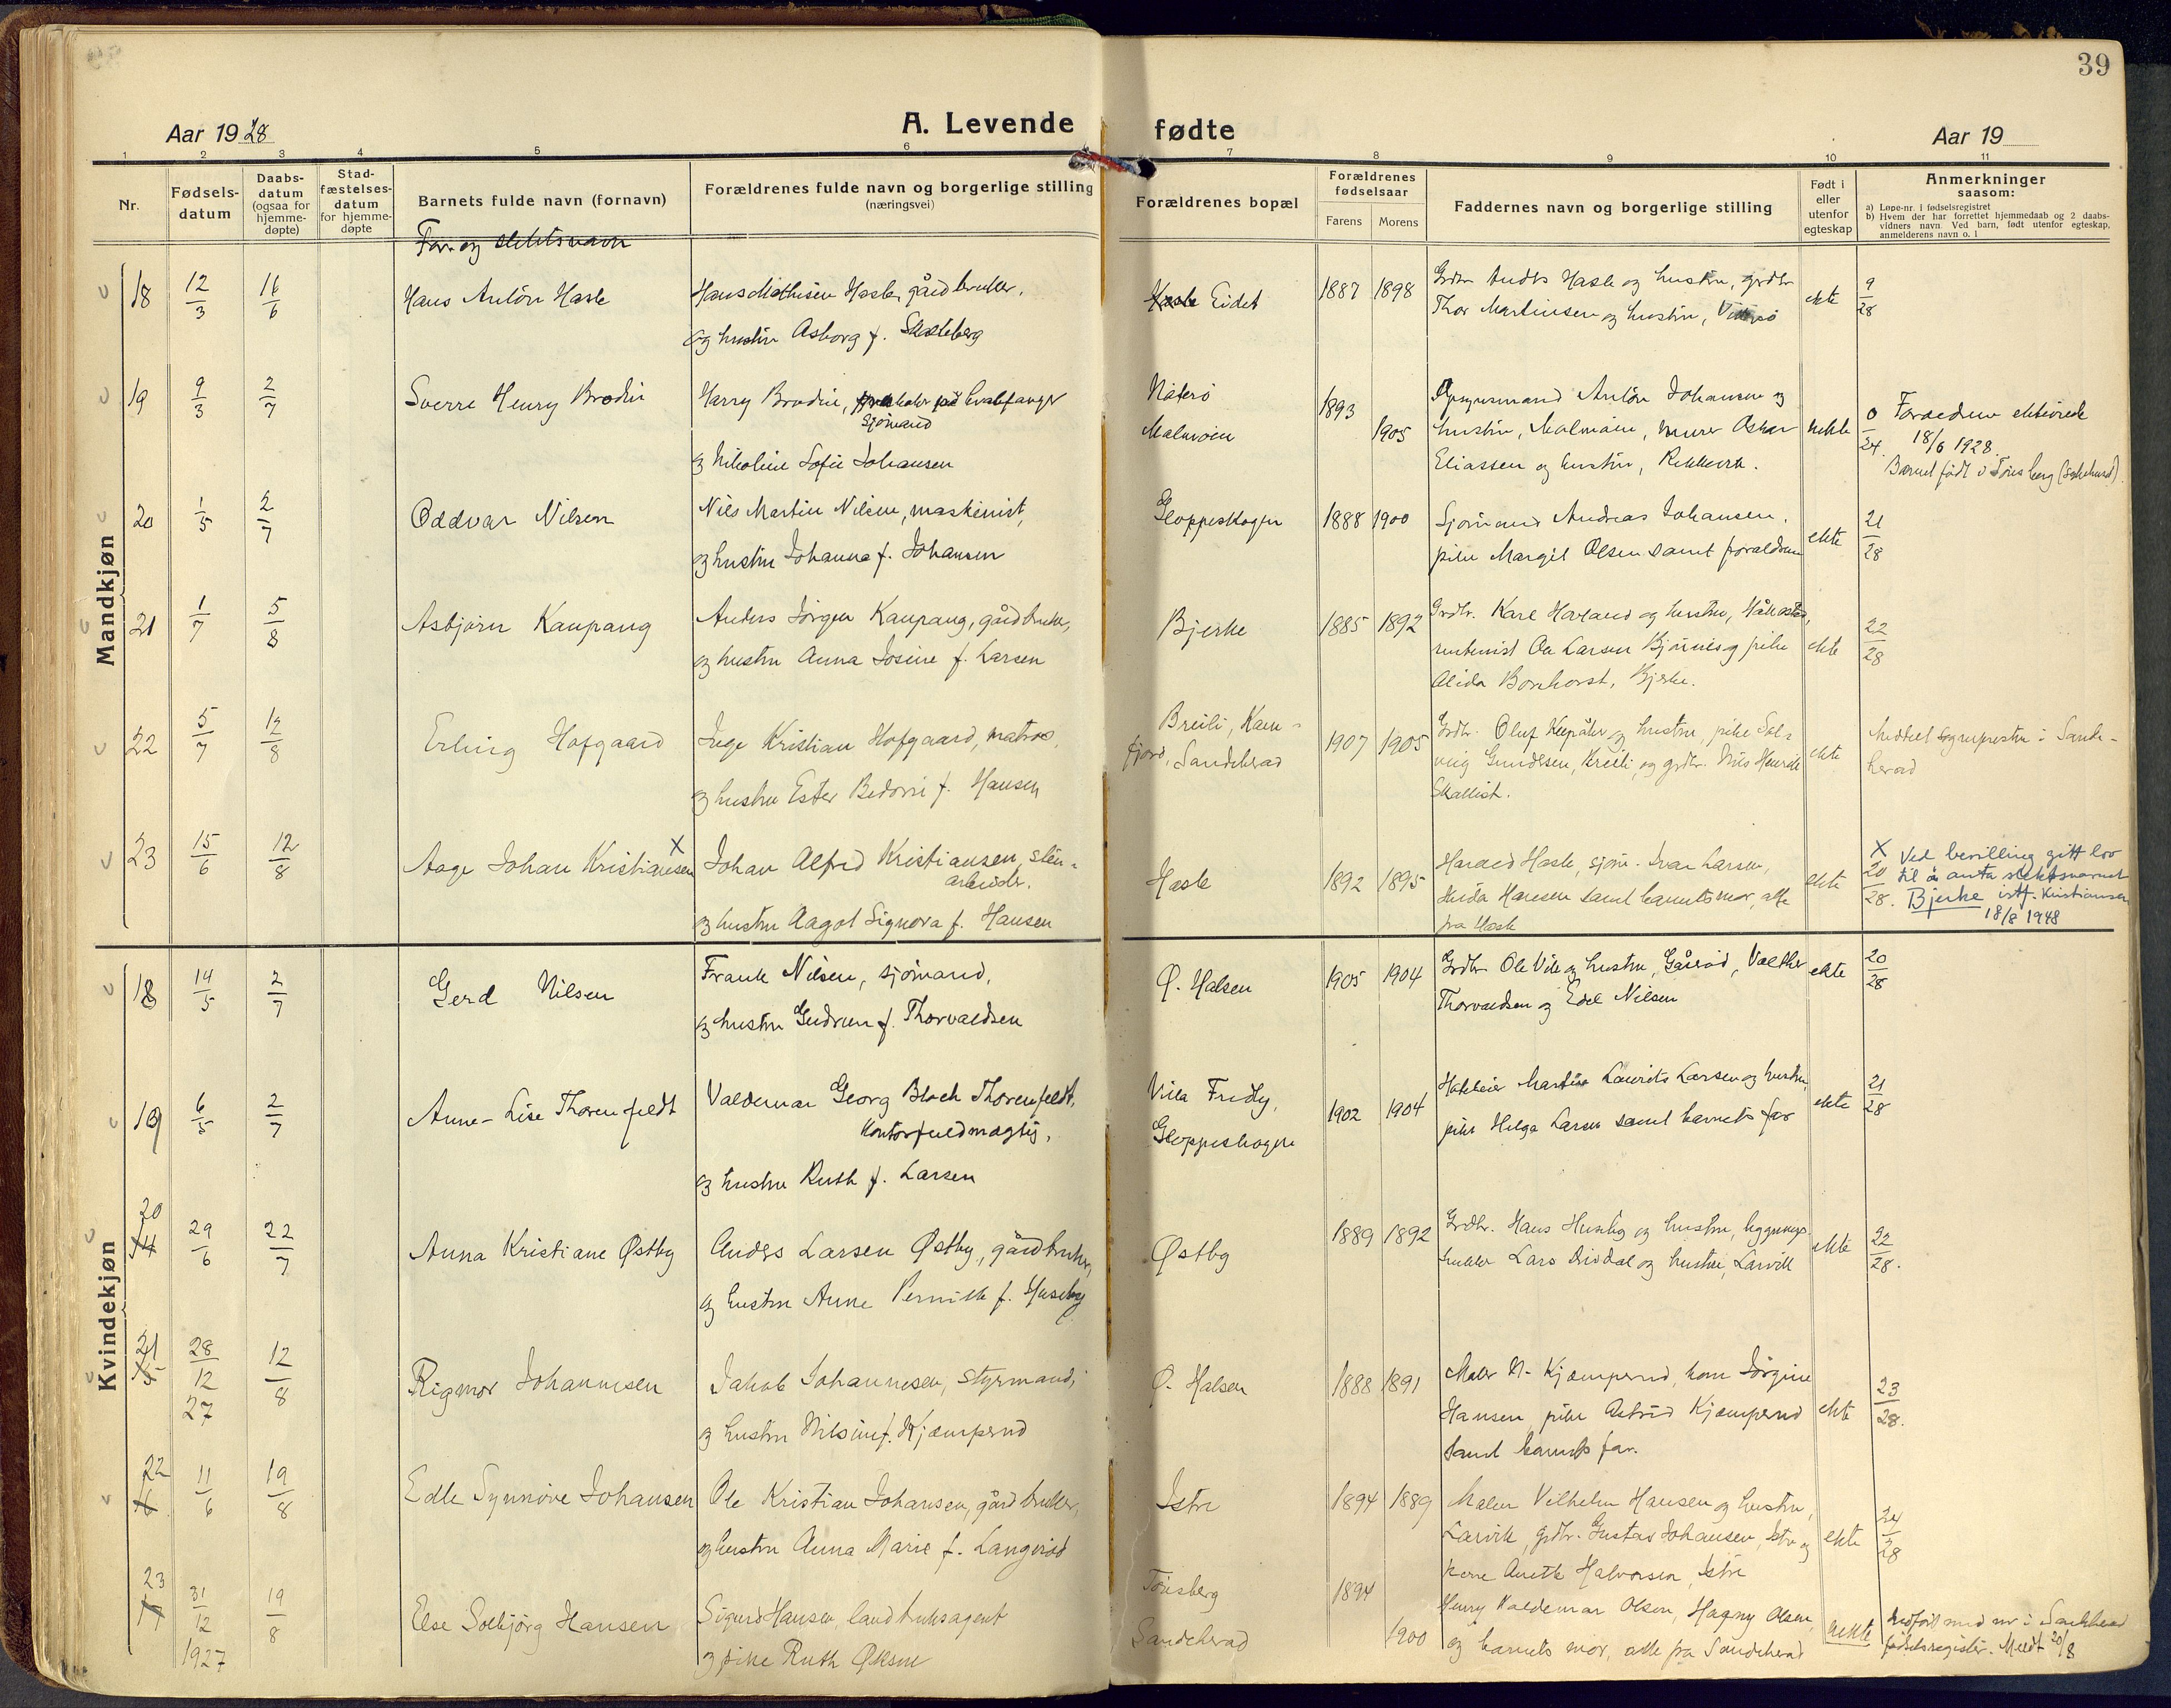 39
Aar 1928
A. Levende fødte
Aar 19
1 2 3 4 5 6 7 8 9 10 11
Nr.
Fødsels-
datum
Daabs-
datum
(ogsaa for
hjemme-
døpte)
Stad-
fæstelses-
datum
for hjemme-
døpte
Barnets fulde navn (fornavn)
For og slektsnavn
Forældrenes fulde navn og borgerlige stilling
(næringsvei)
Forældrenes bopæl
Forældrenes
fødselsaar
Farens Morens
Faddernes navn og borgerlige stilling
Født i
eller
utenfor
egteskap
Anmerkninger
saasom:
a) Løpe-nr. i fødselsregistret
b) Hvem der har forrettet hjemmedaab og 2 daabs-
vidners navn. Ved barn, født utenfor egteskap,
anmelderens navn o. l
Mandkjøn
18 12/3 16/6 Hans Antón Hasle Hans Mathisen Hasle, gårdbruker,
og hustru Asborg f. Skaleberg
Hasle Eidet 1887 1898 Grdbr. Anders Hasle og hustru, grdbr.
Thor Martinsen og hustru, ekte 9/28
19 9/3 2/7 Sverre Henry Brodin Harry Brodin, hvalfanger
Sjømand
og Nikoline Sofie Johansen
Nøterø
Malmøien
1893 1905
Anton Johansen og
hustru, Malmøien, murer Oskar
Eliassen og hustru, Rekkevik. uekte 0/24. Foreldrene ektevirede
18/6 1928.
Barnet født i Tønsberg (sykehus).
20 1/5 2/7 Oddvar Nilsen Nils Martin Nilsen, maskinist,
og hustru Johanna f. Johansen
Gloppeskogen 1888 1900 Sjømand Andreas Johansen,
pike Margit Olsen samt foreldrene ekte 21/28
21 1/7 5/8 Asbjørn Kaupang Anders Jørgen Kaupang, gårdbruker,
og hustru Anna Josine f. Larsen
Bjerke 1885 1892 Grdbr. Karl Havand og hustru,
Ole Larsen Bjønnes og pike
Alida Bornhorst, Bjerke. ekte 22/28
22 5/7 12/8 Erling Hofgaard Inge Kristian Hofgaard, matros,
og hustru Ester f. Hansen
Breili, Kam-
fjord, Sandeherad 1907 1905 Grdbr. Oluf og hustru, pike Sol-
veig Gundersen, Breili, og grdbr. Nils Henrik
Skallist. ekte Meddelt sogneprsten i Sande-
herad
23 15/6 12/8 Aage Johan Kristiansen X Johan Alfred Kristiansen, sten-
arbeider.
og hustru Aagot Signora f. Hansen
Hasle 1892 1895 Harald Hasle, sjøm. Ivar Larsen,
Hansen samt barnets mor, alle
fra Hasle ekte 20/28. X Ved bevilling gitt lov
til å anta slektsnavnet
Bjerke istf. Kristiansen
18/8 1948
Kvindekjøn
18 14/5 2/7 Gerd Nilsen Frank Nilsen, sjømand,
og hustru Gudrun f. Thorvaldsen
Ø. Halsen 1905 1904 Grdbr. Ole Vile og hustru, Gåserød, Valther
Thorvaldsen og Edel Nilsen ekte 20/28
19 6/5 2/7 Anne-Lise Thorenfeldt Valdemar Georg Bloch Thorenfeldt,
Kontorfuldmægtig,
og hustru Ruth f. Larsen
Villa Fredly,
Gloppeskogen 1902 1904 Martin Laurits Larsen og hustru,
pike Helga Larsen samt barnets far ekte 21/28
20 14 29/6 22/7 Anna Kristiane Østby Anders Larsen Østby, gårdbruker,
og hustru Anne Pernille f. Huseby
Østby 1889 1892 Grdbr. Hans Huseby og hustru,
Lars og hustru, Larvik ekte 22/28.
21 15 28/12 27 12/8 Rigmor Johannesen Jakob Johannesen, styrmand,
og hustru Nilsine f. Kjæmperud
Ø. Halsen 1888 1891 Maler N. Kjæmperud, kone Jørgine
Hansen, pike Astrid Kjæmperud
samt barnets far. ekte 23/28.
22 16 11/6 19/8 Edle Synnøve Johansen Ole Kristian Johansen, gårdbruker,
og hustru Anna Marie f. Langerød
Istre 1894 1889 Maler Vilhelm Hansen og hustru,
Larvik, grdbr. Gustav Johansen, Istre og
kone Anette Halvorsen, Istre ekte 24/28
23 17 31/12 1927 19/8 Else Solbjørg Hansen Sigurd Hansen, landbruksagent
og pike Ruth Olsen
Tønsberg
Sandeherad 1894 1900 Henry Valdemar Olsen, Hagny Olsen,
og barnets mor, alle fra Sandeherad uekte Indført med nr i Sandeherad
fødselsregister. Meldt 20/8